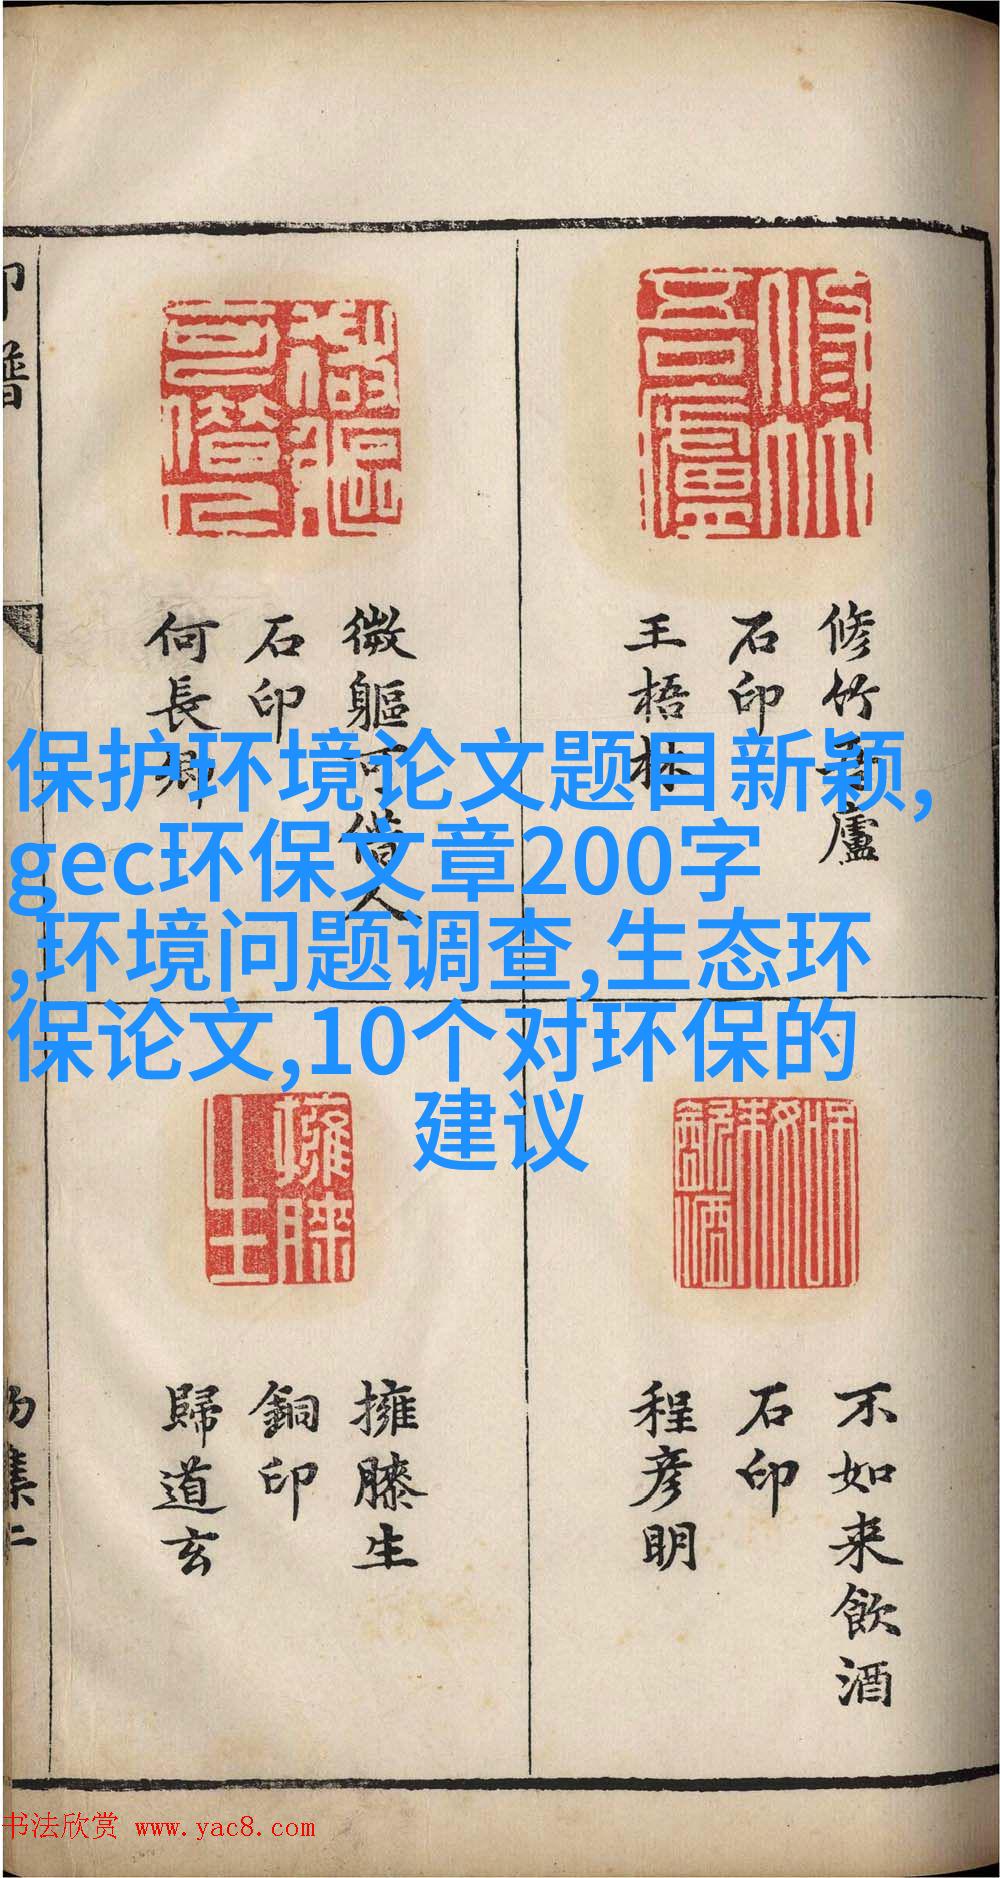 修竹吾廬
石印
王梧林
微軀可人
石印
何長卿
保护环境论文题目新颖,
gec环保文章200字
,环境问题调查,生态环
保论文,10个对环保的
建议
不如来飲酒
石印
程彦明
擁膝生
銅印
歸道玄
印譜
书法欣赏 www.yac8.com